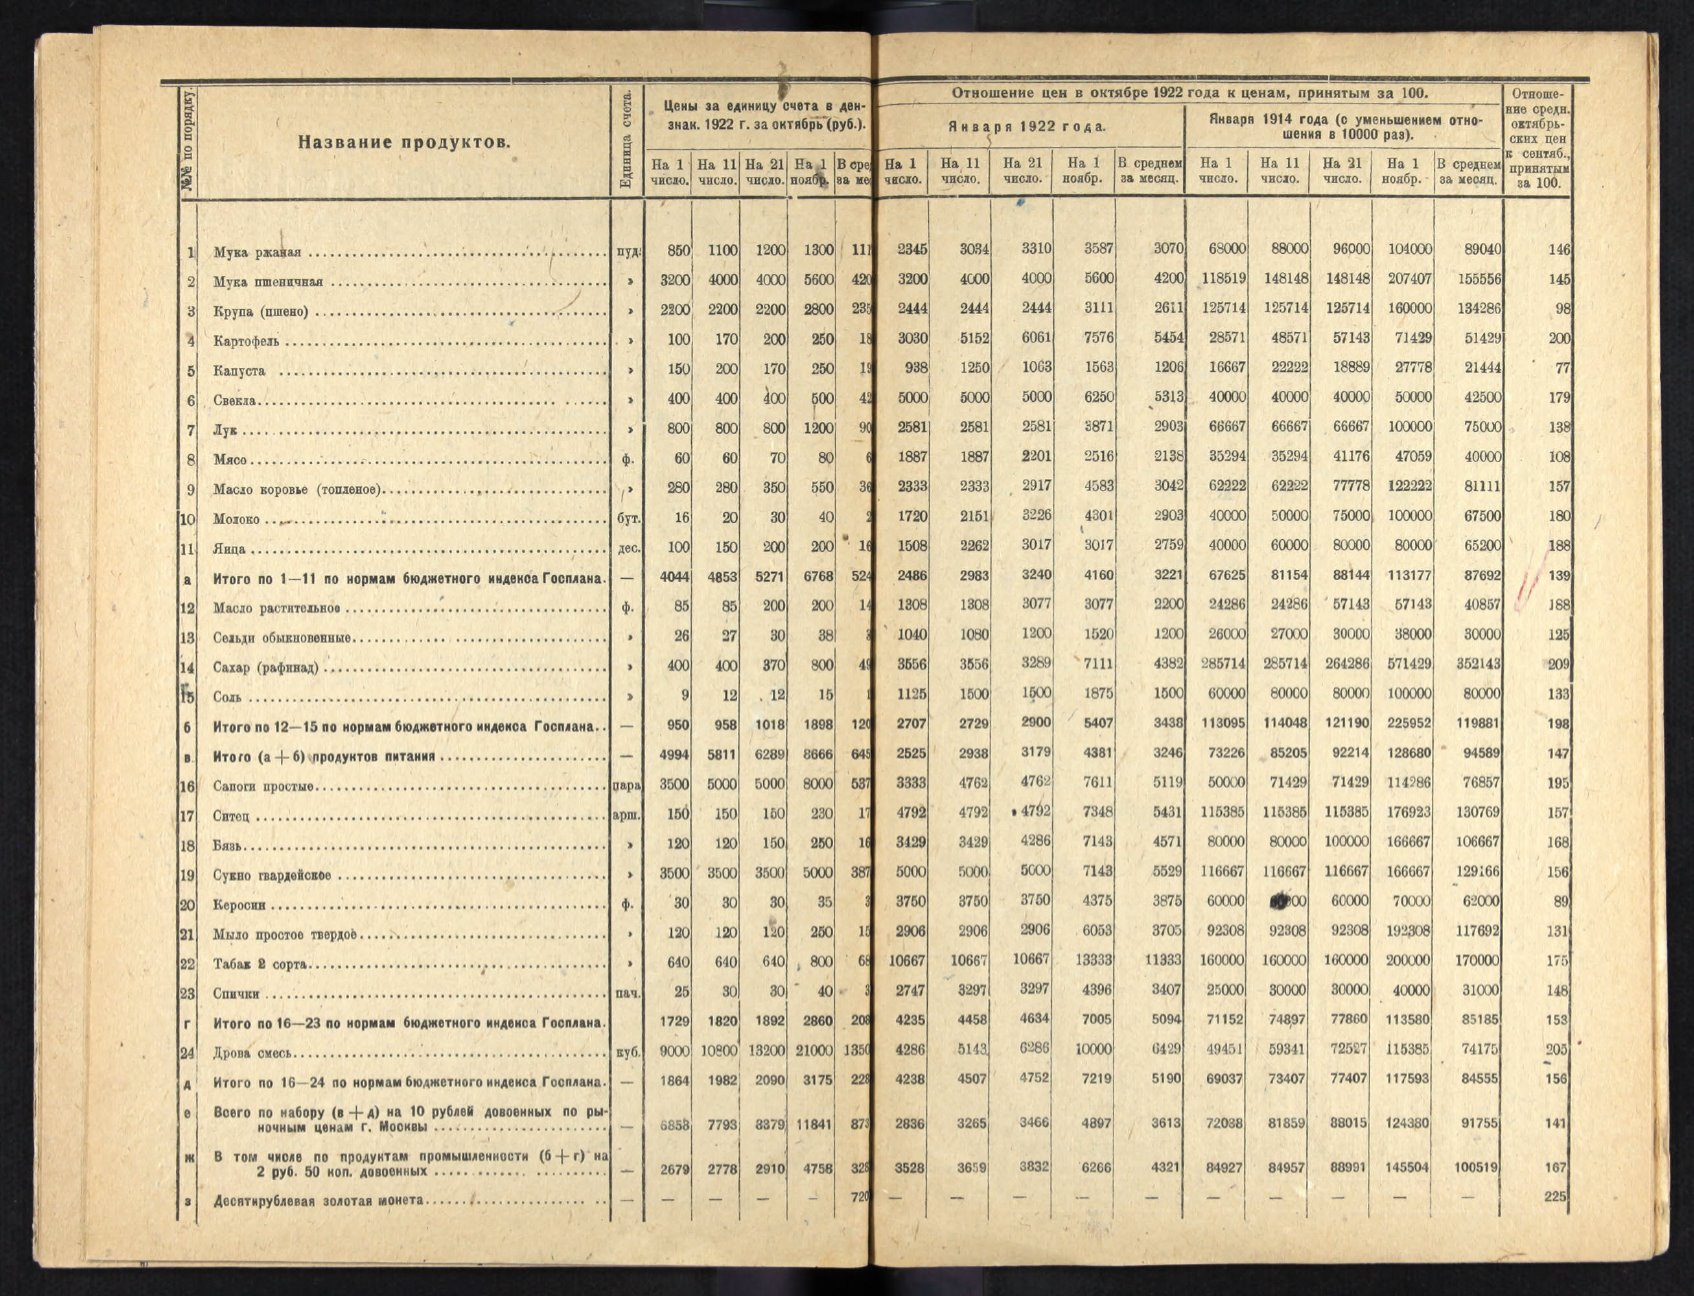 №№ по порядку.
Название продуктов.
Единица счета.
Цены за единицу счета в ден-
знак. 1922 г. за октябрь (руб.).
Отношение цен в октябре 1922 года к ценам, принятым за 100.
Января 1922 года.
Января 1914 года (с уменьшением отно-
шения в 10000 раз).
Отноше-
ние средн.
октябрь-
ских цен
к сентяб.,
принятым
за 100.
На 1 число. На 11 число. На 21 число. На 1 ноябр. В сре за ме На 1 число. На 11 число. На 21 число. На 1 ноябр. В среднем за месяц. На 1 число. На 11 число. На 21 число. На 1 ноябр. В среднем за месяц.
1 Мука ржаная пуд. 850 1100 1200 1300 111 2345 3034 3310 3587 3070 68000 88000 96000 104000 89040 146
2 Мука пшеничная » 3200 4000 4000 5600 420 3200 4000 4000 5600 4200 118519 148148 148148 207407 155556 145
3 Крупа (пшено) » 2200 2200 2200 2800 235 2444 2444 2444 3111 2611 125714 125714 125714 160000 134286 98
4 Картофель » 100 170 200 250 18 3030 5152 6061 7576 5454 28571 48571 57143 71429 51429 200
5 Капуста » 150 200 170 250 19 938 1250 1063 1563 1206 16667 22222 18889 27778 21444 77
6 Свекла » 400 400 400 500 42 5000 5000 5000 6250 5313 40000 40000 40000 50000 42500 179
7 Лук » 800 800 800 1200 90 2581 2581 2581 3871 2903 66667 66667 66667 100000 75000 138
8 Мясо ф. 60 60 70 80 6 1887 1887 2201 2516 2138 35294 35294 41176 47059 40000 108
9 Масло коровье (топленое) » 280 280 350 550 36 2333 2333 2917 4583 3042 62222 62222 77778 122222 81111 157
10 Молоко бут. 16 20 30 40 2 1720 2151 3226 4301 2903 40000 50000 75000 100000 67500 180
11 Яица дес. 100 150 200 200 16 1508 2262 3017 3017 2759 40000 60000 80000 80000 65200 188
а Итого по 1—11 по нормам бюджетного индекса Госплана. — 4044 4853 5271 6768 524 2486 2983 3240 4160 3221 67625 81154 88144 113177 87692 139
12 Масло растительное ф. 85 85 200 200 14 1308 1308 3077 3077 2200 24286 24286 57143 57143 40857 188
13 Сельди обыкновенные » 26 27 30 38 3 1040 1080 1200 1520 1200 26000 27000 30000 38000 30000 125
14 Сахар (рафинад) » 400 400 370 800 49 3556 3556 3289 7111 4382 285714 285714 264286 571429 352143 209
15 Соль » 9 12 12 15 1 1125 1500 1500 1875 1500 60000 80000 80000 100000 80000 133
б Итого по 12—15 по нормам бюджетного индекса Госплана. — 950 958 1018 1898 120 2707 2729 2900 5407 3438 113095 114048 121190 225952 119881 198
в Итого (а + б) продуктов питания — 4994 5811 6289 8666 645 2525 2938 3179 4381 3246 73226 85205 92214 128680 94589 147
16 Сапоги простые пара 3500 5000 5000 8000 537 3333 4762 4762 7611 5119 50000 71429 71429 114286 76857 195
17 Ситец арш. 150 150 150 230 17 4792 4792 4792 7348 5431 115385 115385 115385 176923 130769 157
18 Бязь » 120 120 150 250 16 3429 3429 4286 7143 4571 80000 80000 100000 166667 106667 168
19 Сукно гвардейское » 3500 3500 3500 5000 387 5000 5000 5000 7143 5529 116667 116667 116667 166667 129166 156
20 Керосин ф. 30 30 30 35 3 3750 3750 3750 4375 3875 60000 60000 70000 62000 89
21 Мыло простое твердое » 120 120 120 250 15 2906 2906 2906 6053 3705 92308 92308 92308 192308 117692 131
22 Табак 2 сорта » 640 640 640 800 68 10667 10667 10667 13333 11333 160000 160000 160000 200000 170000 175
23 Спички пач. 25 30 30 40 3 2747 3297 3297 4396 3407 25000 30000 30000 40000 31000 148
г Итого по 16—23 по нормам бюджетного индекса Госплана. 1729 1820 1892 2860 208 4235 4458 4634 7005 5094 71152 74897 77860 113580 85185 153
24 Дрова смесь куб. 9000 10800 13200 21000 1350 4286 5143 6286 10000 6429 49451 59341 72527 115385 74175 205
д Итого по 16—24 по нормам бюджетного индекса Госплана. — 1864 1982 2090 3175 228 4238 4507 4752 7219 5190 69037 73407 77407 117593 84555 156
е Всего по набору (в + д) на 10 рублей довоенных по ры-
ночным ценам г. Москвы — 6858 7793 8379 11841 873 2836 3265 3466 4897 3613 72038 81859 88015 124380 91755 141
ж В том числе по продуктам промышленности (б + г) на
2 руб. 50 коп. довоенных — 2679 2778 2910 4758 328 3528 3659 3832 6266 4321 84927 84957 88991 145504 100519 167
з Десятирублевая золотая монета — — — — — 720 — — — — — — — — — — 225